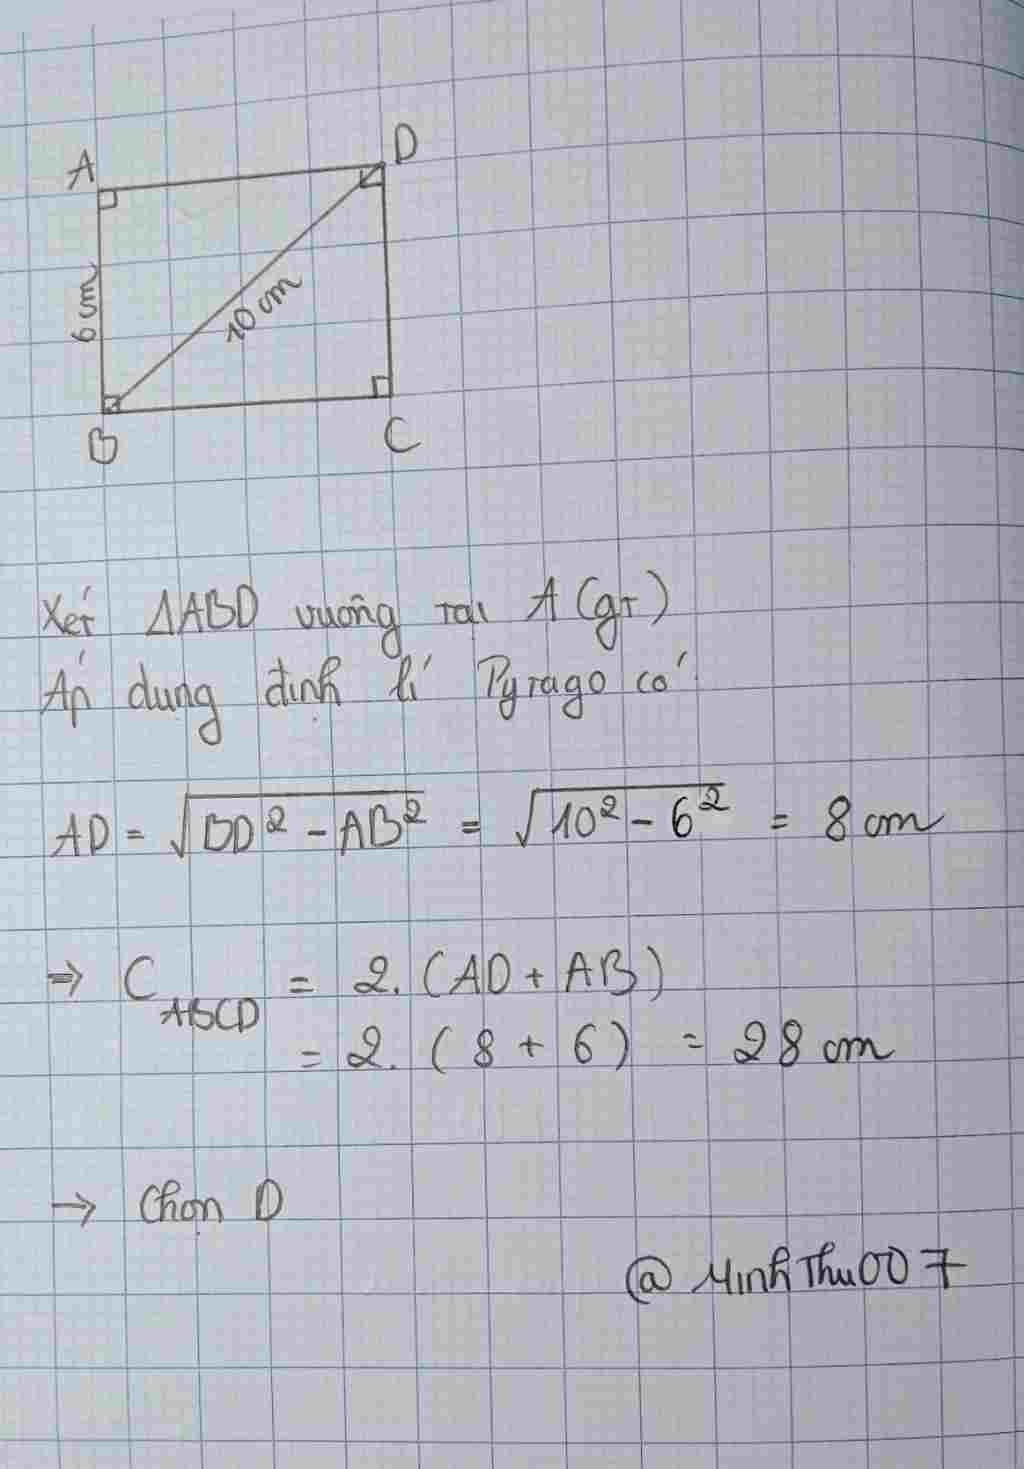 A
D
6cm
10 cm
B
C
Xét ΔABD vuông tại A (gt)
Áp dụng định lí Pytago có
AD = √BD² - AB² = √10² - 6² = 8 cm
⇒ C ABCD = 2. (AD + AB)
= 2. (8 + 6) = 28 cm
→ Chọn D
@ MinhThu007